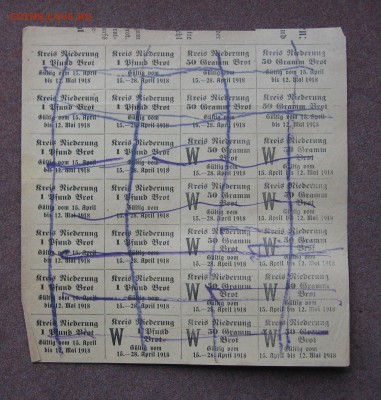 Kreis Niederung
1 Pfund Brot
Gültig vom 15. April
bis 12. Mai 1918
Kreis Niederung
1 Pfund Brot
Gültig vom
15.—28. April 1918
Kreis Niederung
50 Gramm Brot
Gültig vom
15.—28. April 1918
Kreis Niederung
50 Gramm Brot
Gültig vom 15. April
bis 12. Mai 1918
Kreis Niederung
1 Pfund Brot
Gültig vom 15. April
bis 12. Mai 1918
Kreis Niederung
1 Pfund Brot
Kreis Niederung
50 Gramm Brot
Kreis Niederung
50 Gramm Brot
Gültig vom 15. April
bis 12. Mai 1918
Kreis Niederung
1 Pfund Brot
Gültig vom 15. April
bis 12. Mai 1918
Kreis Niederung
1 Pfund Brot
Gültig vom 15. April
bis 12. Mai 1918
Kreis Niederung
W 50 Gramm
Brot
Gültig vom
Kreis Niederung
W 50 Gramm
Brot
Gültig vom
15. April bis 12. Mai 1918
Kreis Niederung
1 Pfund Brot
Gültig vom 15. April
bis 12. Mai 1918
Kreis Niederung
1 Pfund Brot
Gültig vom 15. April
bis 12. Mai 1918
Kreis Niederung
W 50 Gramm
Brot
Gültig vom
Kreis Niederung
W 50 Gramm
Brot
Gültig vom
15. April bis 12. Mai 1918
Kreis Niederung
1 Pfund Brot
Gültig vom 15. April
bis 12. Mai 1918
Kreis Niederung
1 Pfund Brot
Gültig vom 15. April
bis 12. Mai 1918
Kreis Niederung
W 50 Gramm
Brot
Gültig vom
Kreis Niederung
W 50 Gramm
Brot
Gültig vom
15. April bis 12. Mai 1918
Kreis Niederung
1 Pfund Brot
Gültig vom 15. April
bis 12. Mai 1918
Kreis Niederung
1 Pfund Brot
Gültig vom 15. April
bis 12. Mai 1918
Kreis Niederung
W 50 Gramm
Brot
Gültig vom
Kreis Niederung
W 50 Gramm
Brot
Gültig vom
15. April bis 12. Mai 1918
Kreis Niederung
1 Pfund Brot
Gültig vom 15. April
bis 12. Mai 1918
Kreis Niederung
W 1 Pfund
Brot
Gültig vom
15.—28. April 1918
Kreis Niederung
W 50 Gramm
Brot
Gültig vom
15. April bis 12. Mai 1918
Kreis Niederung
W 50 Gramm
Brot
Gültig vom
15. April bis 12. Mai 1918